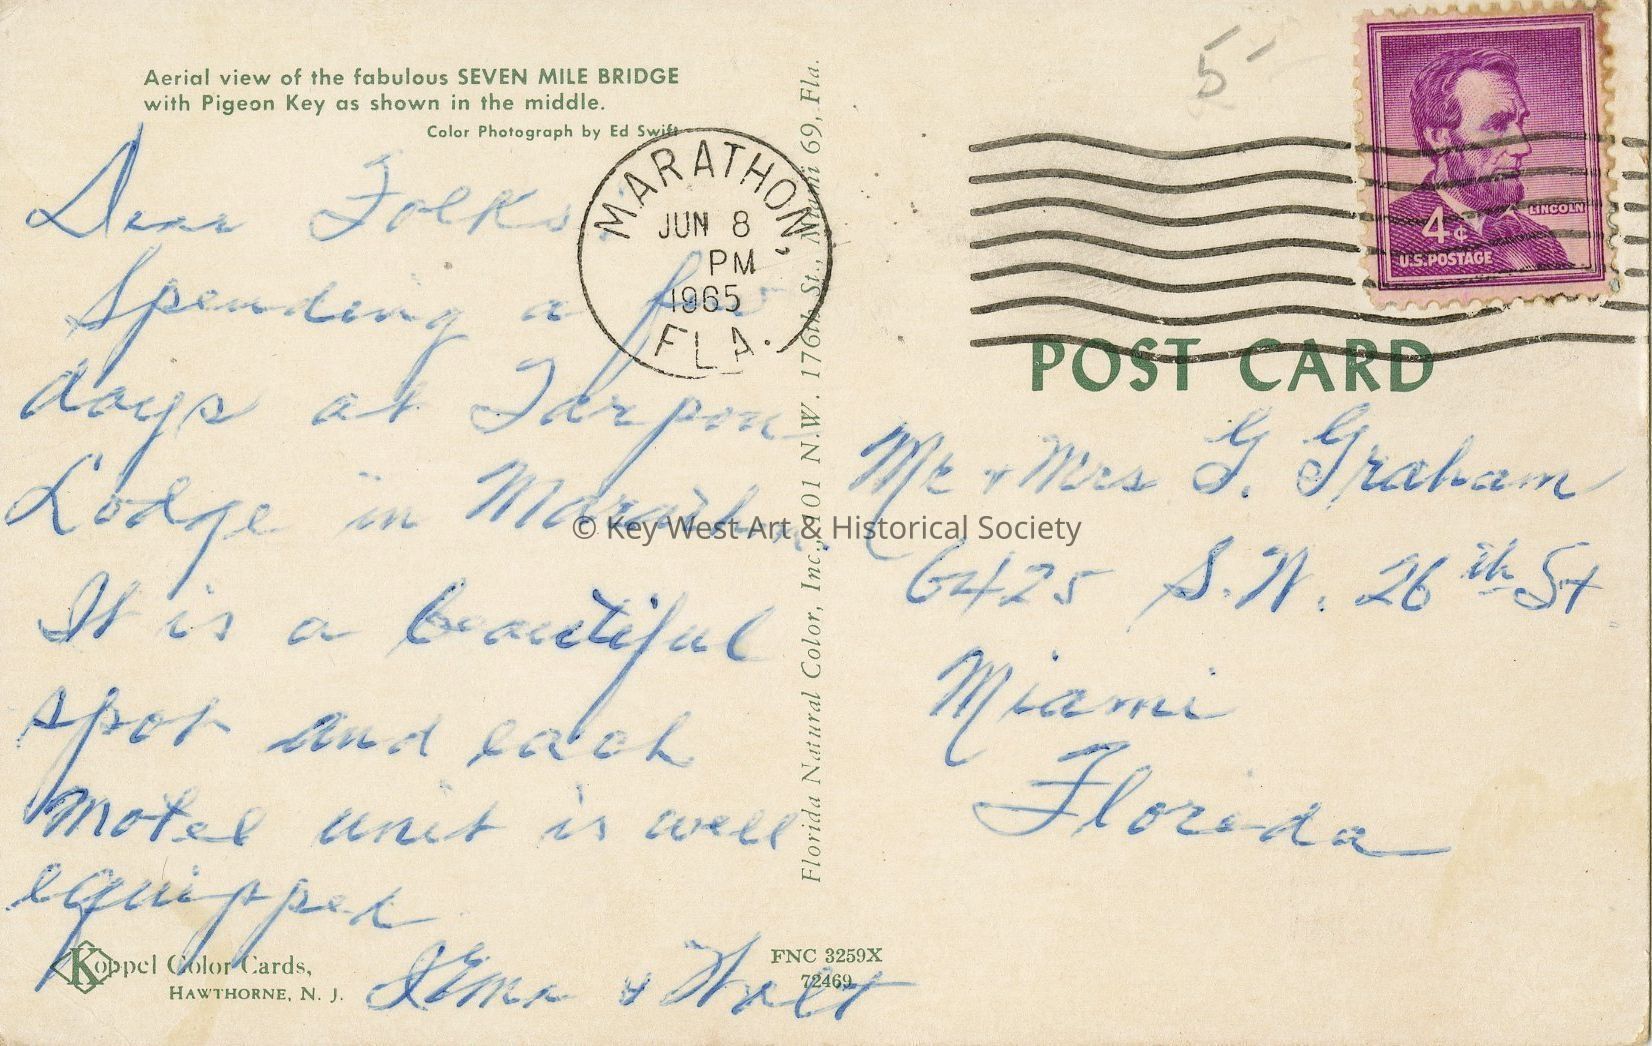 Aerial view of the fabulous SEVEN MILE BRIDGE
with Pigeon Key as shown in the middle.
Color Photograph by Ed Swift
Dear Folks:
Spending a few
days at Tarpon
Lodge in Marathon.
It is a beautiful
spot and each
motel unit is well
equipped
& Walt
Koppel Color Cards,
HAWTHORNE, N. J.
MARATHON,
JUN 8
PM
1965
FLA.
Florida Natural Color, Inc., 101 N.W. 176th St., Miami 69, Fla.
FNC 3259X
72469
5
LINCOLN
4¢
U.S. POSTAGE
POST CARD
Mr & Mrs G. Graham
6425 S.W. 26th St
Miami
Florida
© Key West Art & Historical Society